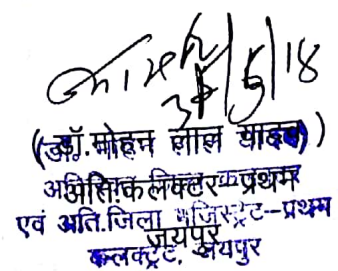 31/5/18
(डॉ. मोहन लाल यादव)
अति. कलक्टर-प्रथम
एवं अति.जिला मजिस्ट्रेट-प्रथम
जयपुर
कलक्ट्रेट, जयपुर